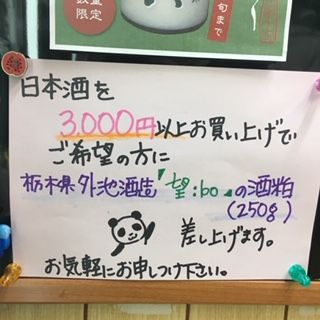 数量
限定
旬まで
日本酒を
3,000円以上お買い上げで
ご希望の方に
栃木県外池酒造『望:bo』の酒粕
(250g)
差し上げます。
お気軽にお申しつけ下さい。